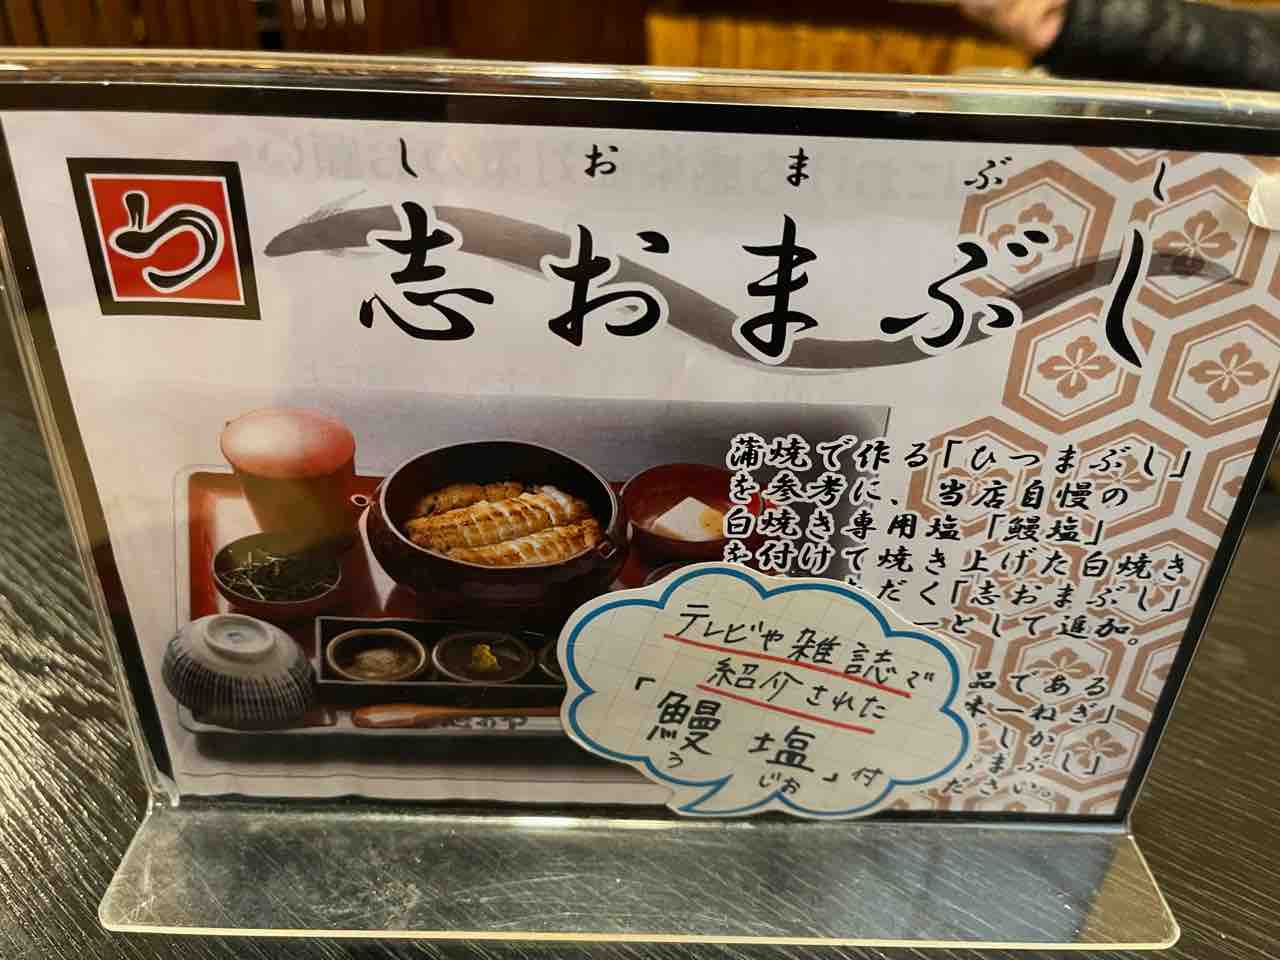 しおまぶし
う
志おまぶし
蒲焼で作る「ひつまぶし」
を参考に、当店自慢の
白焼き専用塩「鰻塩」
を付けて焼き上げた白焼き
だく「志おまぶし」
ーとして追加。
品である
ねぎ」
しか
まぶし」
ださい。
テレビや雑誌で
紹介された
「鰻塩」付
う じお